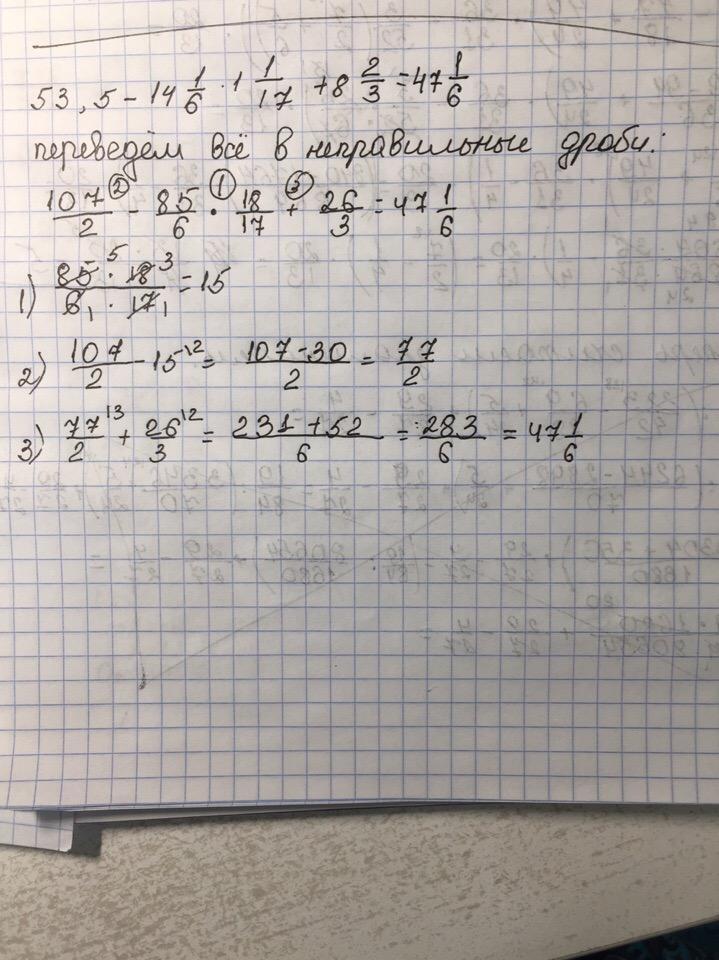 53,5 - 14 1/6 · 1 1/17 + 8 2/3 = 47 1/6
переведём всё в неправильные дроби:
107/2 ② - 85/6 · ① 18/17 + ③ 26/3 = 47 1/6
1) 85 5 · 18 3 / 6 1 · 17 1 = 15
2) 107/2 - 15 \2 = 107-30/2 = 77/2
3) 77 \3/2 + 26 \2/3 = 231+52/6 = 283/6 = 47 1/6